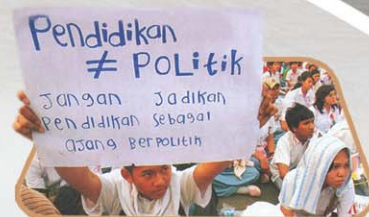 Pendidikan
≠ POLitik
Jangan Jadikan
Pendidikan Sebagai
ajang Berpolitik